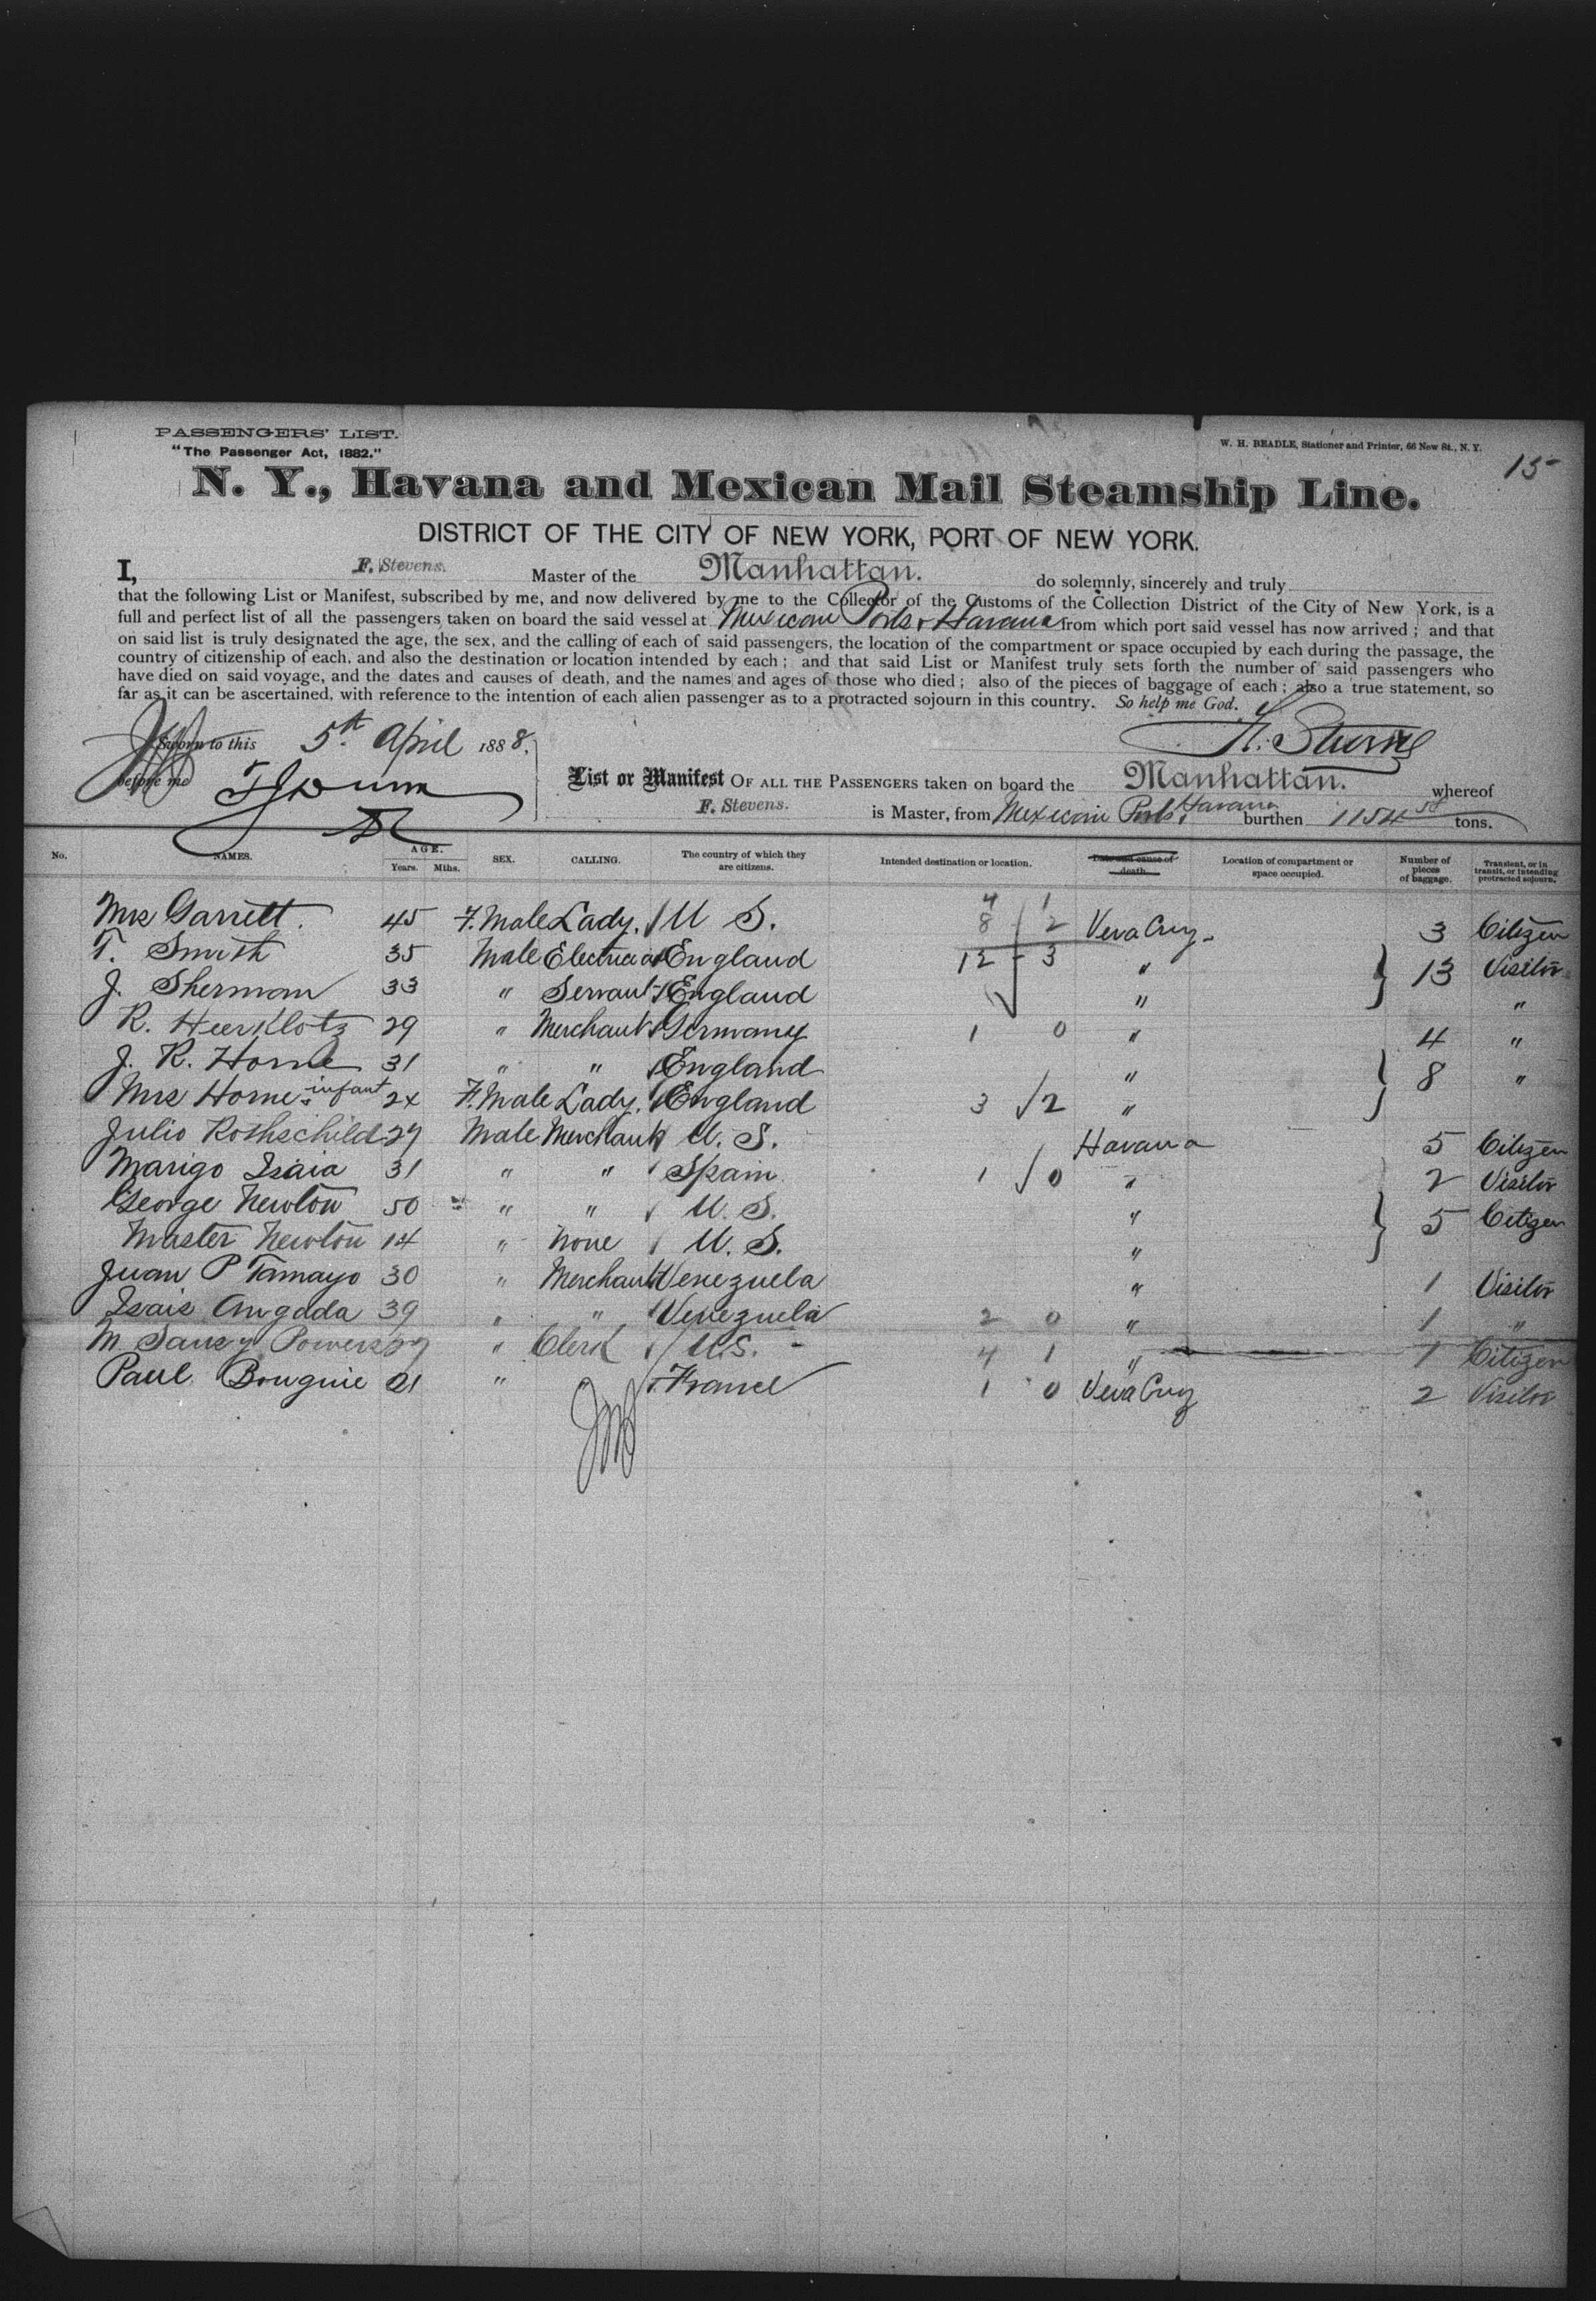 PASSENGERS' LIST.
"The Passenger Act, 1882."
W. H. BEADLE, Stationer and Printer, 66 New St., N. Y.
15
N. Y., Havana and Mexican Mail Steamship Line.
DISTRICT OF THE CITY OF NEW YORK, PORT OF NEW YORK.
I, F. Stevens. Master of the Manhattan. do solemnly, sincerely and truly
that the following List or Manifest, subscribed by me, and now delivered by me to the Collector of the Customs of the Collection District of the City of New York, is a
full and perfect list of all the passengers taken on board the said vessel at Mexican Ports & Havana from which port said vessel has now arrived; and that
on said list is truly designated the age, the sex, and the calling of each of said passengers, the location of the compartment or space occupied by each during the passage, the
country of citizenship of each, and also the destination or location intended by each; and that said List or Manifest truly sets forth the number of said passengers who
have died on said voyage, and the dates and causes of death, and the names and ages of those who died; also of the pieces of baggage of each; also a true statement, so
far as it can be ascertained, with reference to the intention of each alien passenger as to a protracted sojourn in this country. So help me God.
Sworn to this 5th April 1888.
before me
F. Stevens
List or Manifest OF ALL THE PASSENGERS taken on board the Manhattan. whereof
F. Stevens. is Master, from Mexican Ports, Havana burthen 1154 58 tons.
No. NAMES. AGE. Years. Mths. SEX. CALLING. The country of which they are citizens. Intended destination or location. Date and cause of death. Location of compartment or space occupied. Number of pieces of baggage. Transient, or in transit, or intending protracted sojourn.
4 1
Mrs Garrett. 45 F. Male Lady. U S. 8 2 Vera Cruz 3 Citizen
T. Smith 35 Male Electrician England 12 3 " 13 Visitor
J. Sherman 33 " Servant England " "
R. Heerklotz 29 " Merchant Germany 1 0 " 4 "
J. R. Horne 31 " " England " 8 "
Mrs Horne & infant 24 F. Male Lady. England 3 2 "
Julio Rothschild 27 Male Merchant U. S. Havana 5 Citizen
Marigo Isaia 31 " " Spain 1 0 " 2 Visitor
George Newton 50 " " U. S. " 5 Citizen
Master Newton 14 " None U. S. "
Juan P Tamayo 30 " Merchant Venezuela " 1 Visitor
Isais Angada 39 " " Venezuela 2 0 " 1 "
M Powers " Clerk U.S. 4 1 " 1 Citizen
Paul Bouguie 21 " " France 1 0 Vera Cruz 2 Visitor